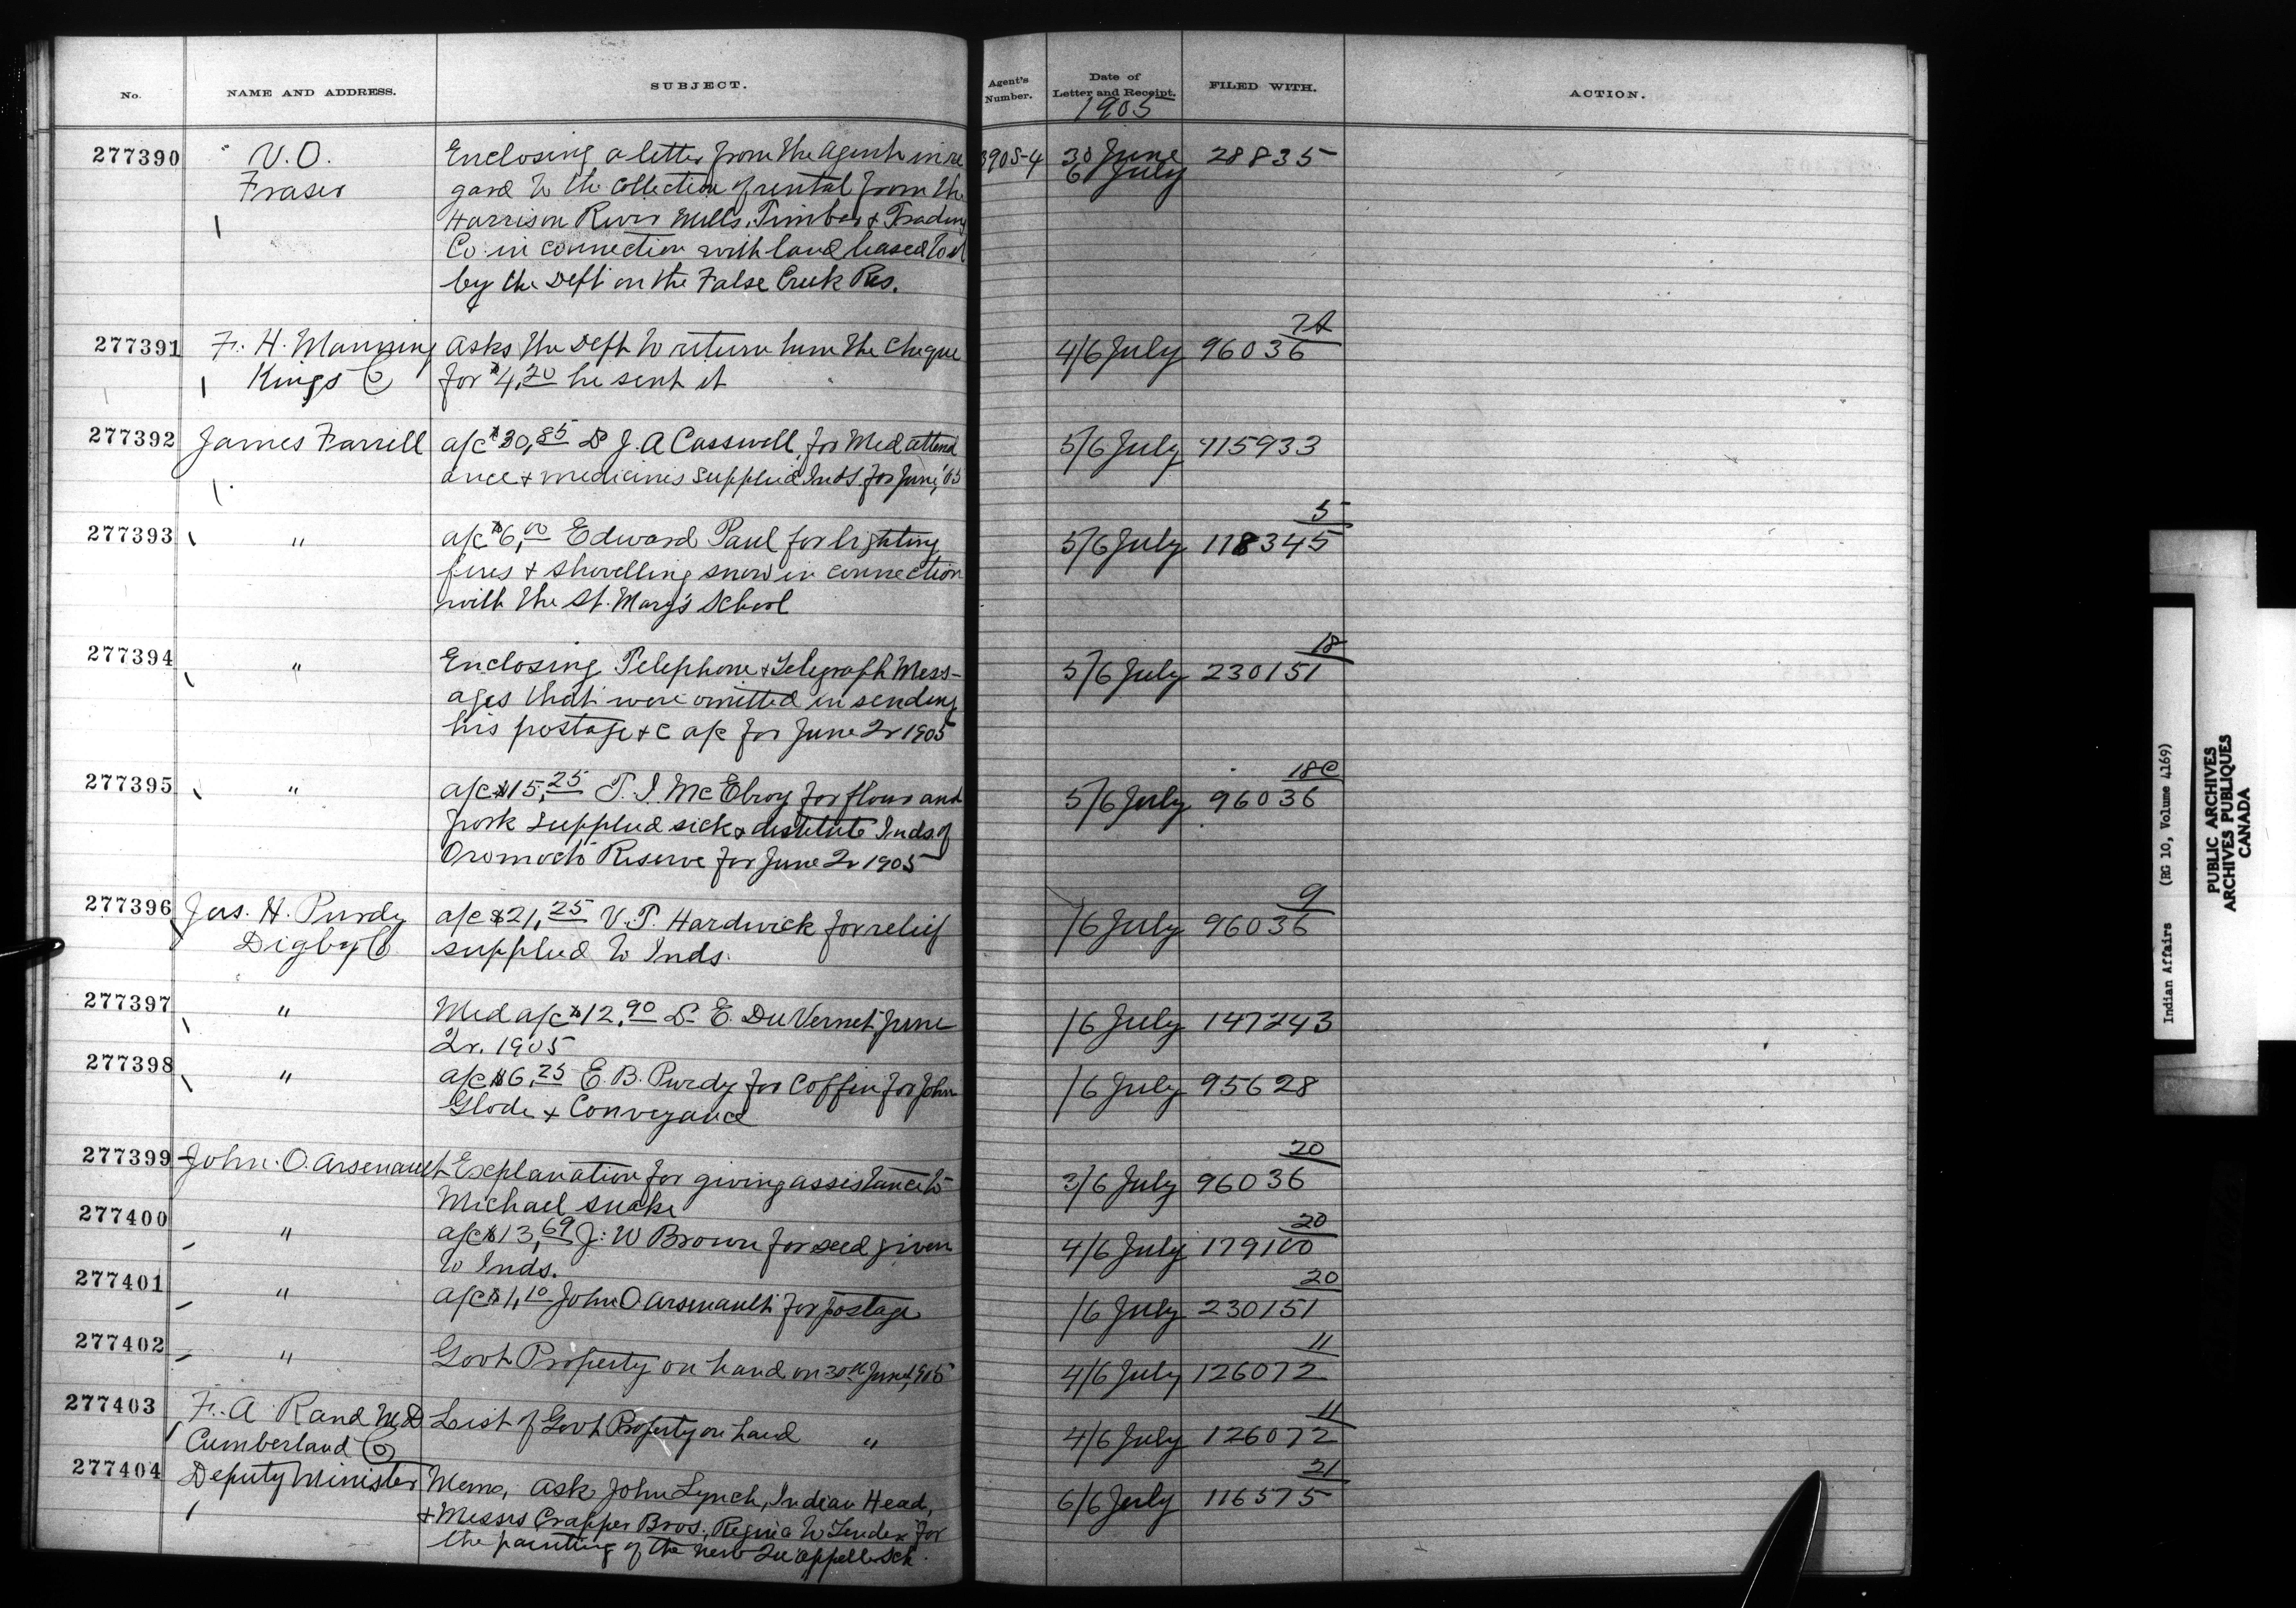 No. NAME AND ADDRESS. SUBJECT. Agent's Number. Date of Letter and Receipt. FILED WITH. ACTION.
1905
277390 V.O. Enclosing a letter from the Agent in re 3905-4 30 June 28835
Fraser gard to the collection of rental from the 6 July
Harrison River Mills, Timber & Trading
Co. in connection with land leased to it
by the Dept on the False Creek Res.
7A
277391 F. H. Manning Asks the Dept to return him the cheque 4/6 July 96036
Kings Co for $4.20 he sent it
277392 James Farrell a/c $30.85 Dr J. A Casswell, for Med attend 5/6 July 115933
ance & medicines supplied Inds. for June, '05
5
277393 " a/c $6.00 Edward Paul for lighting 5/6 July 118345
fires & shovelling snow in connection
with the St. Mary's School
18
277394 " Enclosing Telephone & Telegraph Mess- 5/6 July 230151
ages that were omitted in sending
his postage &c a/c for June Qr 1905
18C
277395 " a/c $15.25 T. J. McElroy for flour and 5/6 July 96036
pork supplied sick & destitute Inds. of
Oromocto Reserve for June Qr 1905
9
277396 Jas. H. Purdy a/c $21.25 V. T. Hardwick for relief /6 July 96036
Digby Co. supplied to Inds.
277397 " Med a/c $12.90 Dr E. DuVernet June /6 July 147243
Qr. 1905
277398 " a/c $6.25 E. B. Purdy for Coffin for John /6 July 95628
Glode & Conveyance
20
277399 John. O. Arsenault Explanation for giving assistance to 3/6 July 96036
Michael Snake
20
277400 " a/c $13.69 J. W Brown for seed given 4/6 July 179100
to Inds.
20
277401 " a/c $1.10 John O Arsenault for postage /6 July 230151
11
277402 " Govt Property on hand on 30th June, 1905 4/6 July 126072
11
277403 F. A Rand M.D. List of Govt Property on hand " 4/6 July 126072
Cumberland Co
21
277404 Deputy Minister Memo, Ask John Lynch, Indian Head, 6/6 July 116575
& Messrs Crapper Bros., Regina to Tender for
the painting of the new Qu'appelle Sch.
Indian Affairs (RG 10, Volume 4169)
PUBLIC ARCHIVES
ARCHIVES PUBLIQUES
CANADA